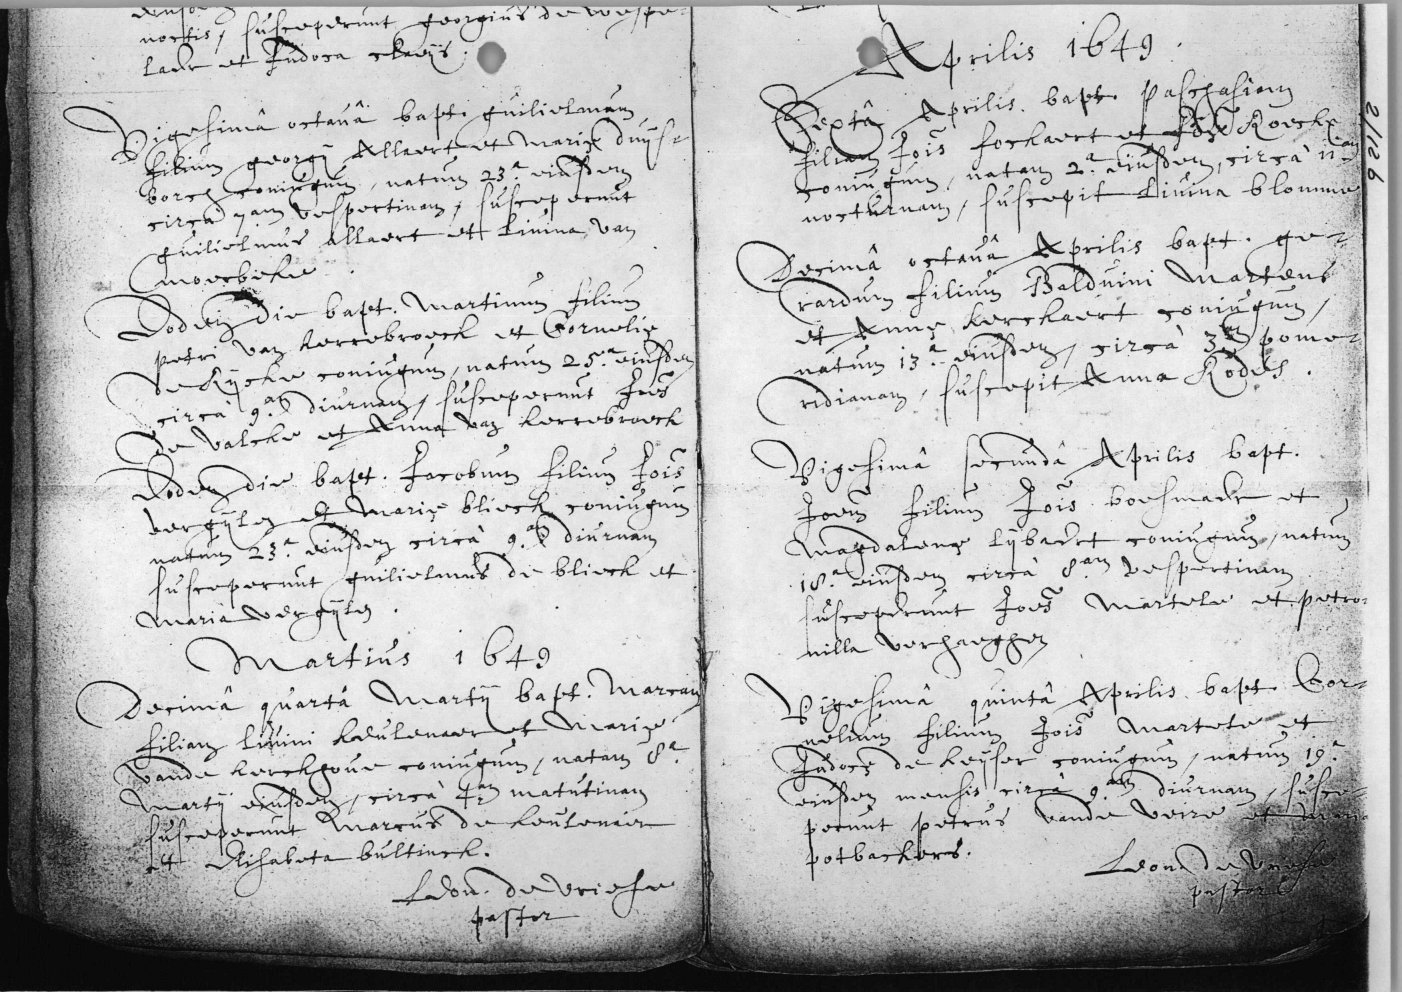 noctis, susceperunt georgius de vespe-
laer et Judoca claeijs.
Vigesimâ octavâ bapt. guilielmum
filium georgij Allaert et Mariȩ duijse-
borch coniugum, natum 23.a eiusdem
circà 7am vespertinam, susceperunt
guilielmus allaert et Livina van
moerbeke.
Eodem die bapt. Martinum filium
petri van kerrebroeck et Corneliȩ
de Rijcke coniugum, natum 25.a eiusdem
circà 9.am diurnam, susceperunt Joēs
de valcke et Anna van kerrebroeck
Eodem die bapt. Jacobum filium Joīs
vergijlen et Mariȩ blieck coniugum
natum 23.a eiusdem circà 9.am diurnam
susceperunt guilielmus de blieck et
Maria vergijlen.
Martius 1649
Decimâ quartâ Martij bapt. Marcam
filiam Livini keulenaer et Mariȩ
vande kerckhove coniugum, natam 8.a
Martij eiusdem, circà 4.am matutinam
susceperunt Marcus de keulenaer
et Elisabeta bultinck.
Leon. de Vriese
pastor
Aprilis 1649.
Sextâ Aprilis bapt. paschasiam
filiam Joīs fockaert et Roeckx
coniugum, natam 2.a eiusdem, circà 11am
nocturnam, suscepit Livina blomme
Decimâ octavâ Aprilis bapt. ge-
rardum filium Balduini Martens
et Annȩ kerckaert coniugum,
natum 13.a eiusdem, circà 3am pome-
ridianam, suscepit Anna Rodes.
Vigesimâ secundâ Aprilis bapt.
Joem filium Joīs boesmaer et
Magdalenȩ Lijbaert coniugum, natum
18.a eiusdem circà 8.am vespertinam
susceperunt Joēs Martele et petro-
nilla verhaeghen
Vigesimâ quintâ Aprilis bapt. Cor-
nelium filium Joīs Martele et
Judocȩ de keijser coniugum, natum 19.a
eiusdem mensis circà 9.am diurnam, susce-
perunt petrus vande veire et
potbackers.
Leon. de Vriese
pastor
2/126